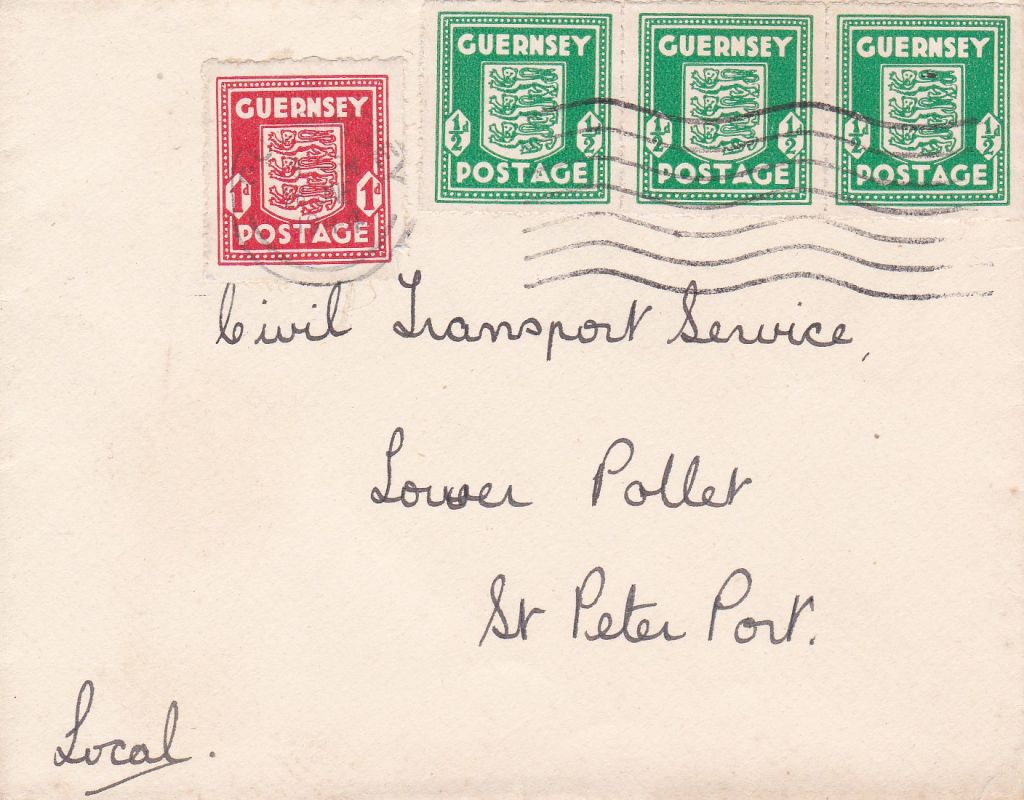 GUERNSEY
1d 1d
POSTAGE
GUERNSEY
½ ½
POSTAGE
GUERNSEY
½ ½
POSTAGE
GUERNSEY
½ ½
POSTAGE
Civil Transport Service,
Lower Pollet
St Peter Port.
Local.